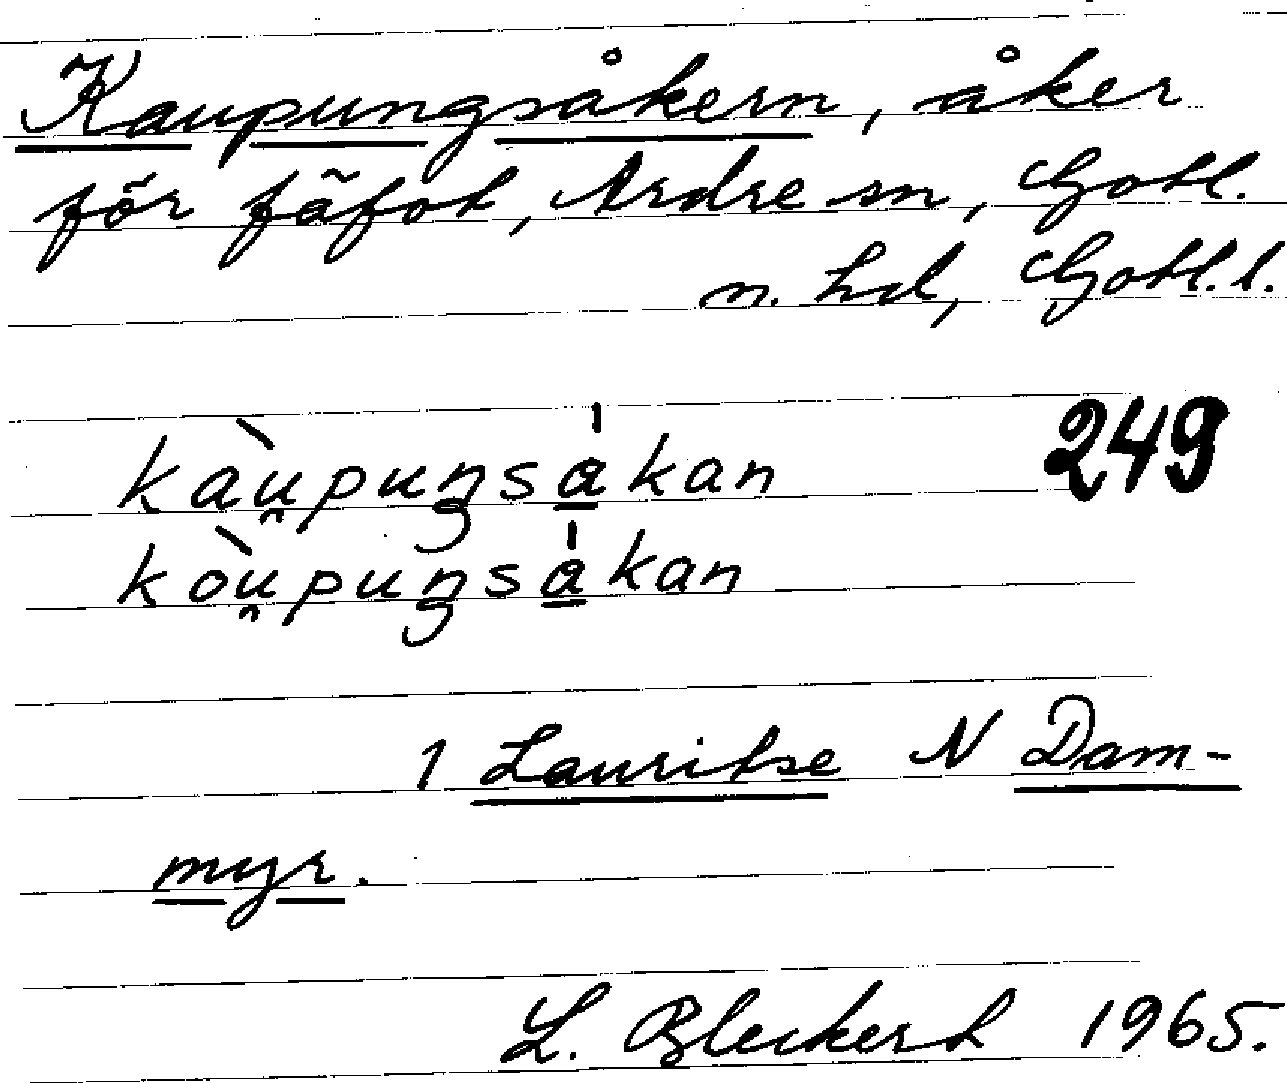 Kaupungsåkern, åker
för fäfot, Ardre sn, Gotl.
n. hd, Gotl. l.
kàu̯puŋsa̲̍kan 249
kòu̯puŋsa̲̍kan
1 Lauritse N Dam-
myr.
L. Bleckert 1965.